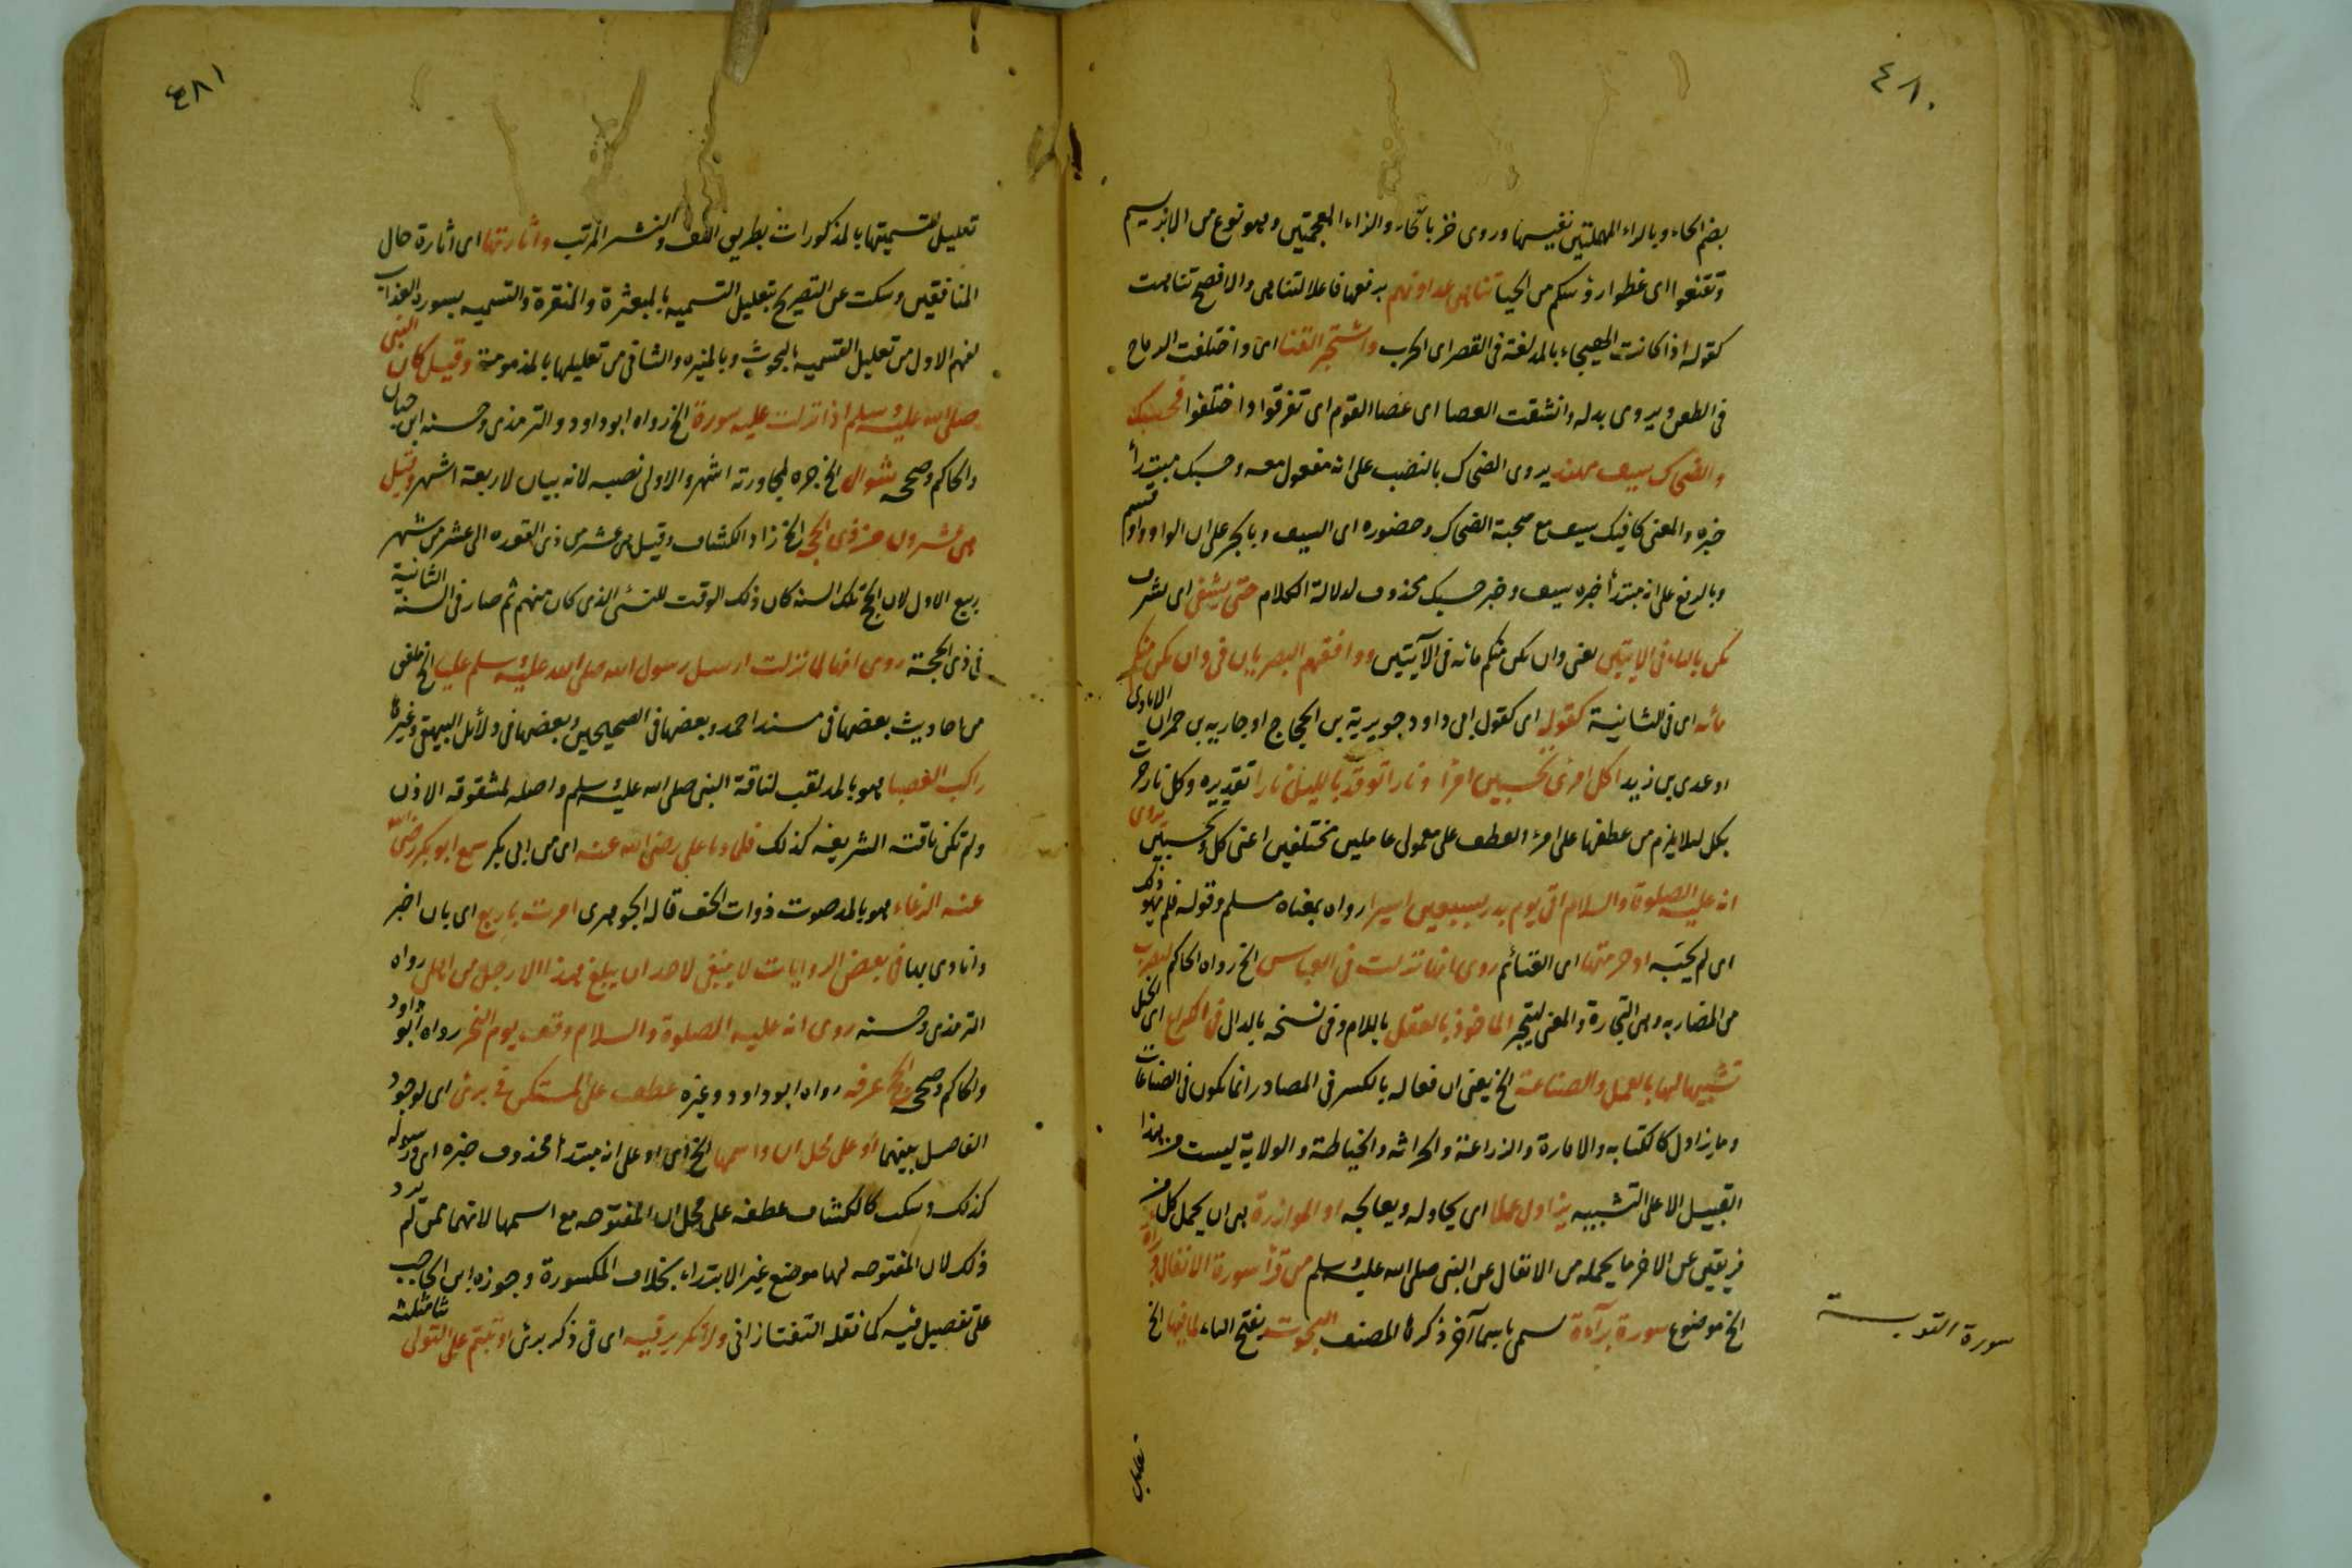 ٤٨٠
بضم الحاء وبالراء المهملتين نفيسها وروى خز بالخاء والزاء المعجمتين وهو نوع من الابريسم
وتقنعوا اى غطوا رؤسكم من الحيا تناهى عداوتهم برفعها فاعلا لتناهى والافصح تناهت
كقوله اذا كانت الهيجاء بالمد لغة فى القصر اى الحرب واشتجر القنا اى واختلفت الرماح
فى الطعن ويروى بدله وانشقت العصا اى عصا القوم اى تفرقوا واختلفوا فحسبك
والضحاك سيف مهند يروى الضحاك بالنصب على انه مفعول معه وحسبك مبتدأ
خبره والمعنى كافيك سيف مع صحبة الضحاك وحضوره اى السيف وبالجر على ان الواو واو قسم
وبالرفع على انه مبتدأ خبره سيف وخبر حسبك محذوف لدلالة الكلام حتى يشفى اى لشرف
تكن بالتاء فى الايتين يعنى وان تكن منكم مائه فى الآيتين ووافقهم البصريان فى وان تكن منكم
مائه اى فى الثانية كقوله اى كقول ابى داود جويرية بن الحجاج او جاريه بن حمران الايادى
او عدى بن زيد اكل امرئ تحسبين امرأ ونارا توقد بالليل نارا تقديره وكل نار جرت
بكل لئلا يلزم من عطفها على امرء العطف على معمولى عاملين مختلفين اعنى كل وتحسبين روى
انه عليه الصلوة والسلام اتى يوم بدر بسبعين اسيرا رواه بمعناه مسلم وقوله فلم يهو ذلك
اى لم يحبه او حرمتها اى الغنائم روى انها نزلت فى العباس الخ رواه الحاكم لتضرب
من المضاربه وهى التجارة والمعنى ليتجر الماخوذ بالعقل باللام وفى نسخه بالدال فى الكراع اى الخيل
تشبيها لها بالعمل والصناعة الخ يعنى ان فعاله بالكسر فى المصادر انما يكون فى الصناعات
وما يزاول كالكتابه والامارة والزراعة والحراثه والخياطة والولاية ليست من هذا
القبيل الا على التشبيه يزاول عملا اى يحاوله ويعالجه او الموازرة هى ان يحمل كل من
فريقين عن الاخر ما يحمله من الاثقال عن النبى صلى الله عليه وسلم من قرأ سورة الانفال وبراه
الخ موضوع سورة برآءة تسمى باسماء آخر ذكرها المصنف البحوث بفتح الباء لما فيها الخ
سورة التوبة
تعليل
٤٨١
تعليل لتسميتها بالمذكورات بطريق اللف والنشر المرتب واثارتها اى اثارة حال
المنافقين وسكت عن التصريح بتعليل التسميه بالمبعثرة والمنقرة والتسميه بسورة العذاب
لفهم الاول من تعليل التسميه بالبحوث وبالمثيره والثانى من تعليلها بالمدمدمة وقيل كان النبى
صلى الله عليه وسلم اذا نزلت عليه سورة الخ رواه ابو داود والترمذى وحسنه ابن حبان
والحاكم وصححه شوال الخ جره لمجاورته اشهر والاولى نصبه لانه بيان لاربعة اشهر وقيل
هى عشرون من ذى الحجه الخ زاد الكشاف وقيل من عشر من ذى القعده الى عشر من شهر
ربيع الاول لان الحج تلك السنه كان ذلك الوقت للنسئ الذى كان منهم ثم صار فى السنة الثانية
فى ذى الحجة روى انها لما نزلت ارسل رسول الله صلى الله عليه وسلم عليا الخ ملفق
من احاديث بعضها فى مسند احمد وبعضها فى الصحيحين وبعضها فى دلائل البيهقى وغيره
راكب العضبا هو بالمد لقب لناقة النبى صلى الله عليه وسلم واصله لمشقوقه الاذن
ولم تكن ناقته الشريفه كذلك فلما دنا على رضى الله عنه اى من ابى بكر سمع ابو بكر رضى الله
عنه الرغاء هو بالمد صوت ذوات الخف قاله الجوهرى امرت باربع اى بان اخبر
وانادى بها فى بعض الروايات لا ينبغى لاحد ان يبلغ هذا الا رجل من اهلى رواه
الترمذى وحسنه روى انه عليه الصلوة والسلام وقف يوم النحر رواه ابو داود
والحاكم وصححه الحج عرفه رواه ابو داود وغيره عطف على المستكن فى برئ اى لوجود
الفاصل بينهما او على محل ان واسمها الخ اى او على انه مبتدأ محذوف خبره اى ورسوله
كذلك وسكت كالكشاف عطفه على محل ان المفتوحه مع اسمها لانهما ممن لم يرد
ذلك لان المفتوحه لها موضع غير الابتداء بخلاف المكسورة وجوزه ابن الحاجب
على تفصيل فيه كما نقله التفتازانى ولا تكرير فيه اى فى ذكر برئ او ثبتم على التولى